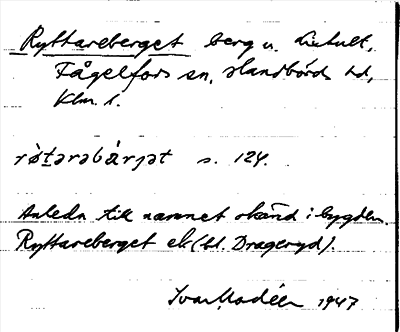 Ryttareberget berg n. Liehult,
Fågelfors sn, Handbörds hd,
Klm. l.
røtarabärjat s. 124.
Anledn till namnet okänd i bygden.
Ryttareberget ek (bl. Drageryd).
Ivar Modéer 1947